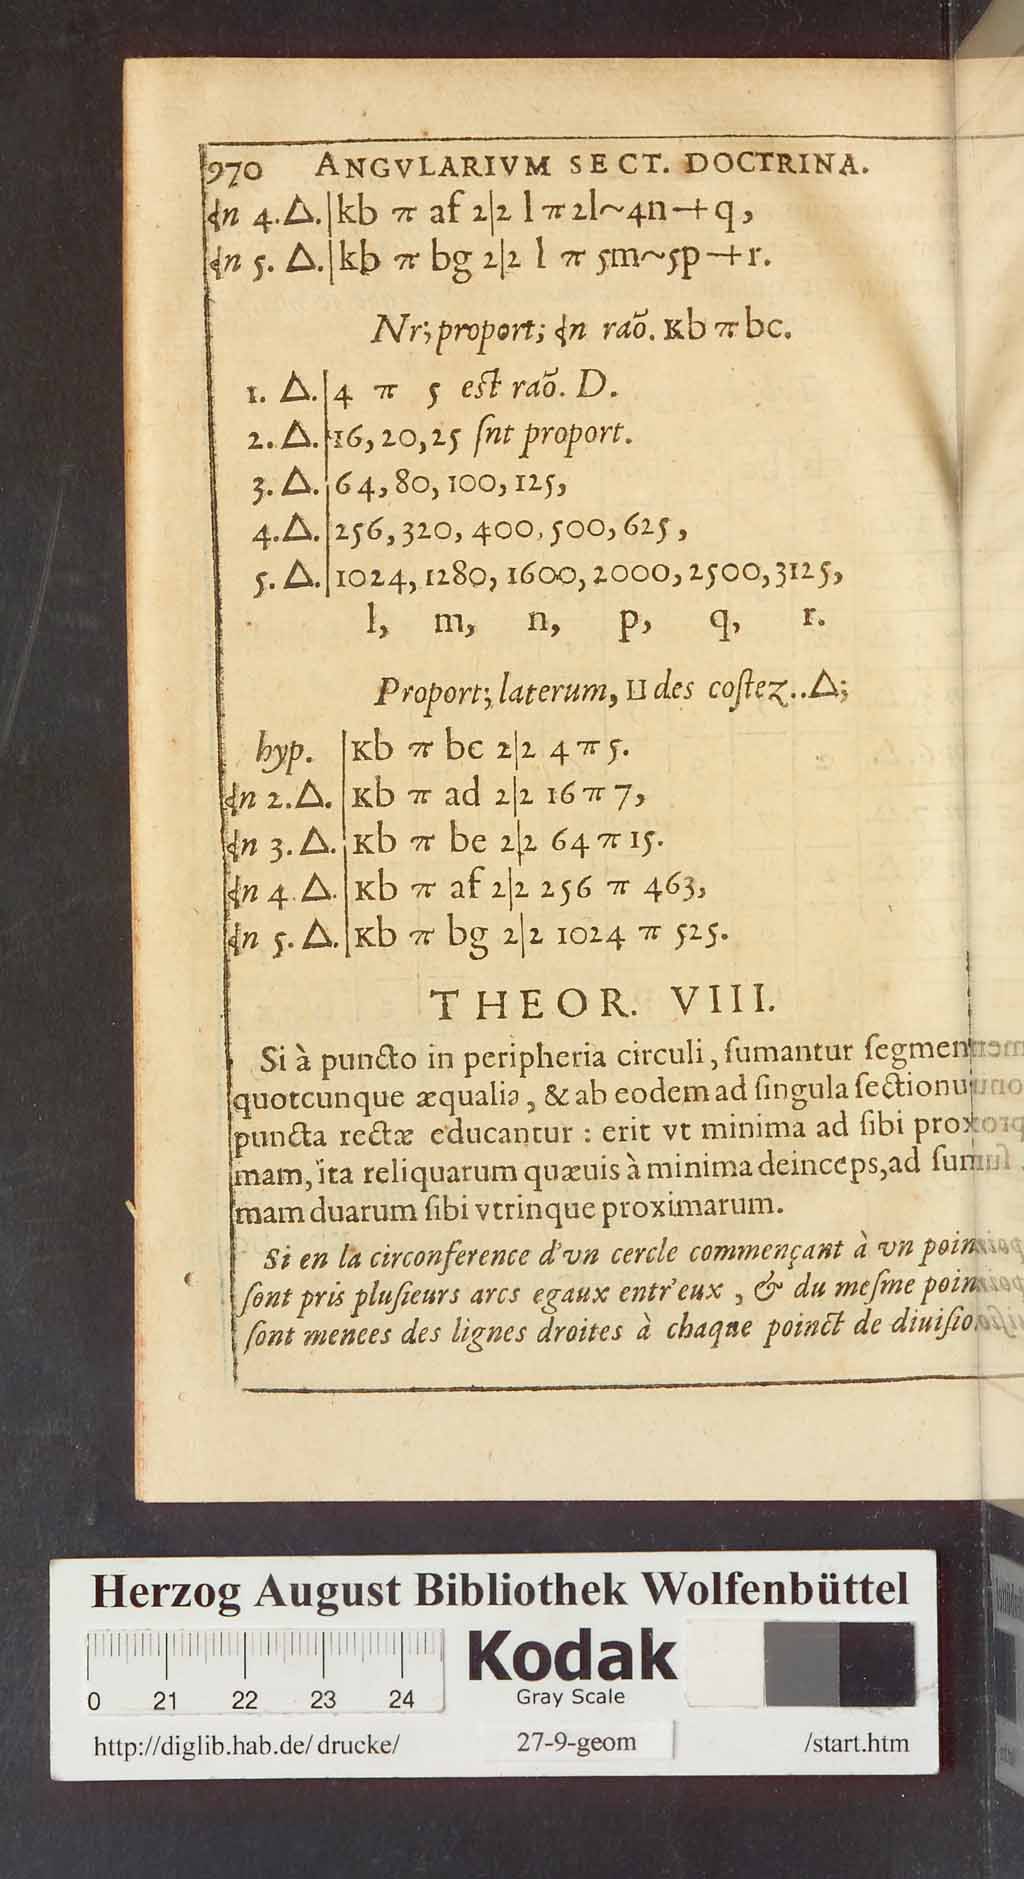 970 ANGVLARIVM SECT. DOCTRINA.
⊰n 4.△.|kb π af 2|2 l π 2l~4n-+q,
⊰n 5. △.|kb π bg 2|2 l π 5m~5p-+r.
Nr; proport; ⊰n raõ. kb π bc.
1. △.|4 π 5 est raõ. D.
2. △.|16, 20, 25 ſnt proport.
3. △.|64, 80, 100, 125,
4. △.|256, 320, 400, 500, 625,
5. △.|1024, 1280, 1600, 2000, 2500, 3125,
l, m, n, p, q, r.
Proport; laterum, ⊔ des coſtez..△;
hyp. |kb π bc 2|2 4 π 5.
⊰n 2.△. |kb π ad 2|2 16 π 7,
⊰n 3.△. |kb π be 2|2 64 π 15.
⊰n 4.△. |kb π af 2|2 256 π 463,
⊰n 5.△. |kb π bg 2|2 1024 π 525.
THEOR. VIII.
Si à puncto in peripheria circuli, ſumantur ſegmen
quotcunque æqualia, & ab eodem ad ſingula ſectionu
puncta rectæ educantur : erit vt minima ad ſibi prox
mam, ita reliquarum quæuis à minima deinceps, ad ſum
mam duarum ſibi vtrinque proximarum.
Si en la circonference d'vn cercle commençant à vn poin
ſont pris pluſieurs arcs egaux entr'eux, & du meſme poin
ſont menees des lignes droites à chaque poinct de diuiſio
Herzog August Bibliothek Wolfenbüttel
Kodak
Gray Scale
0 21 22 23 24
http://diglib.hab.de/drucke/ 27-9-geom /start.htm